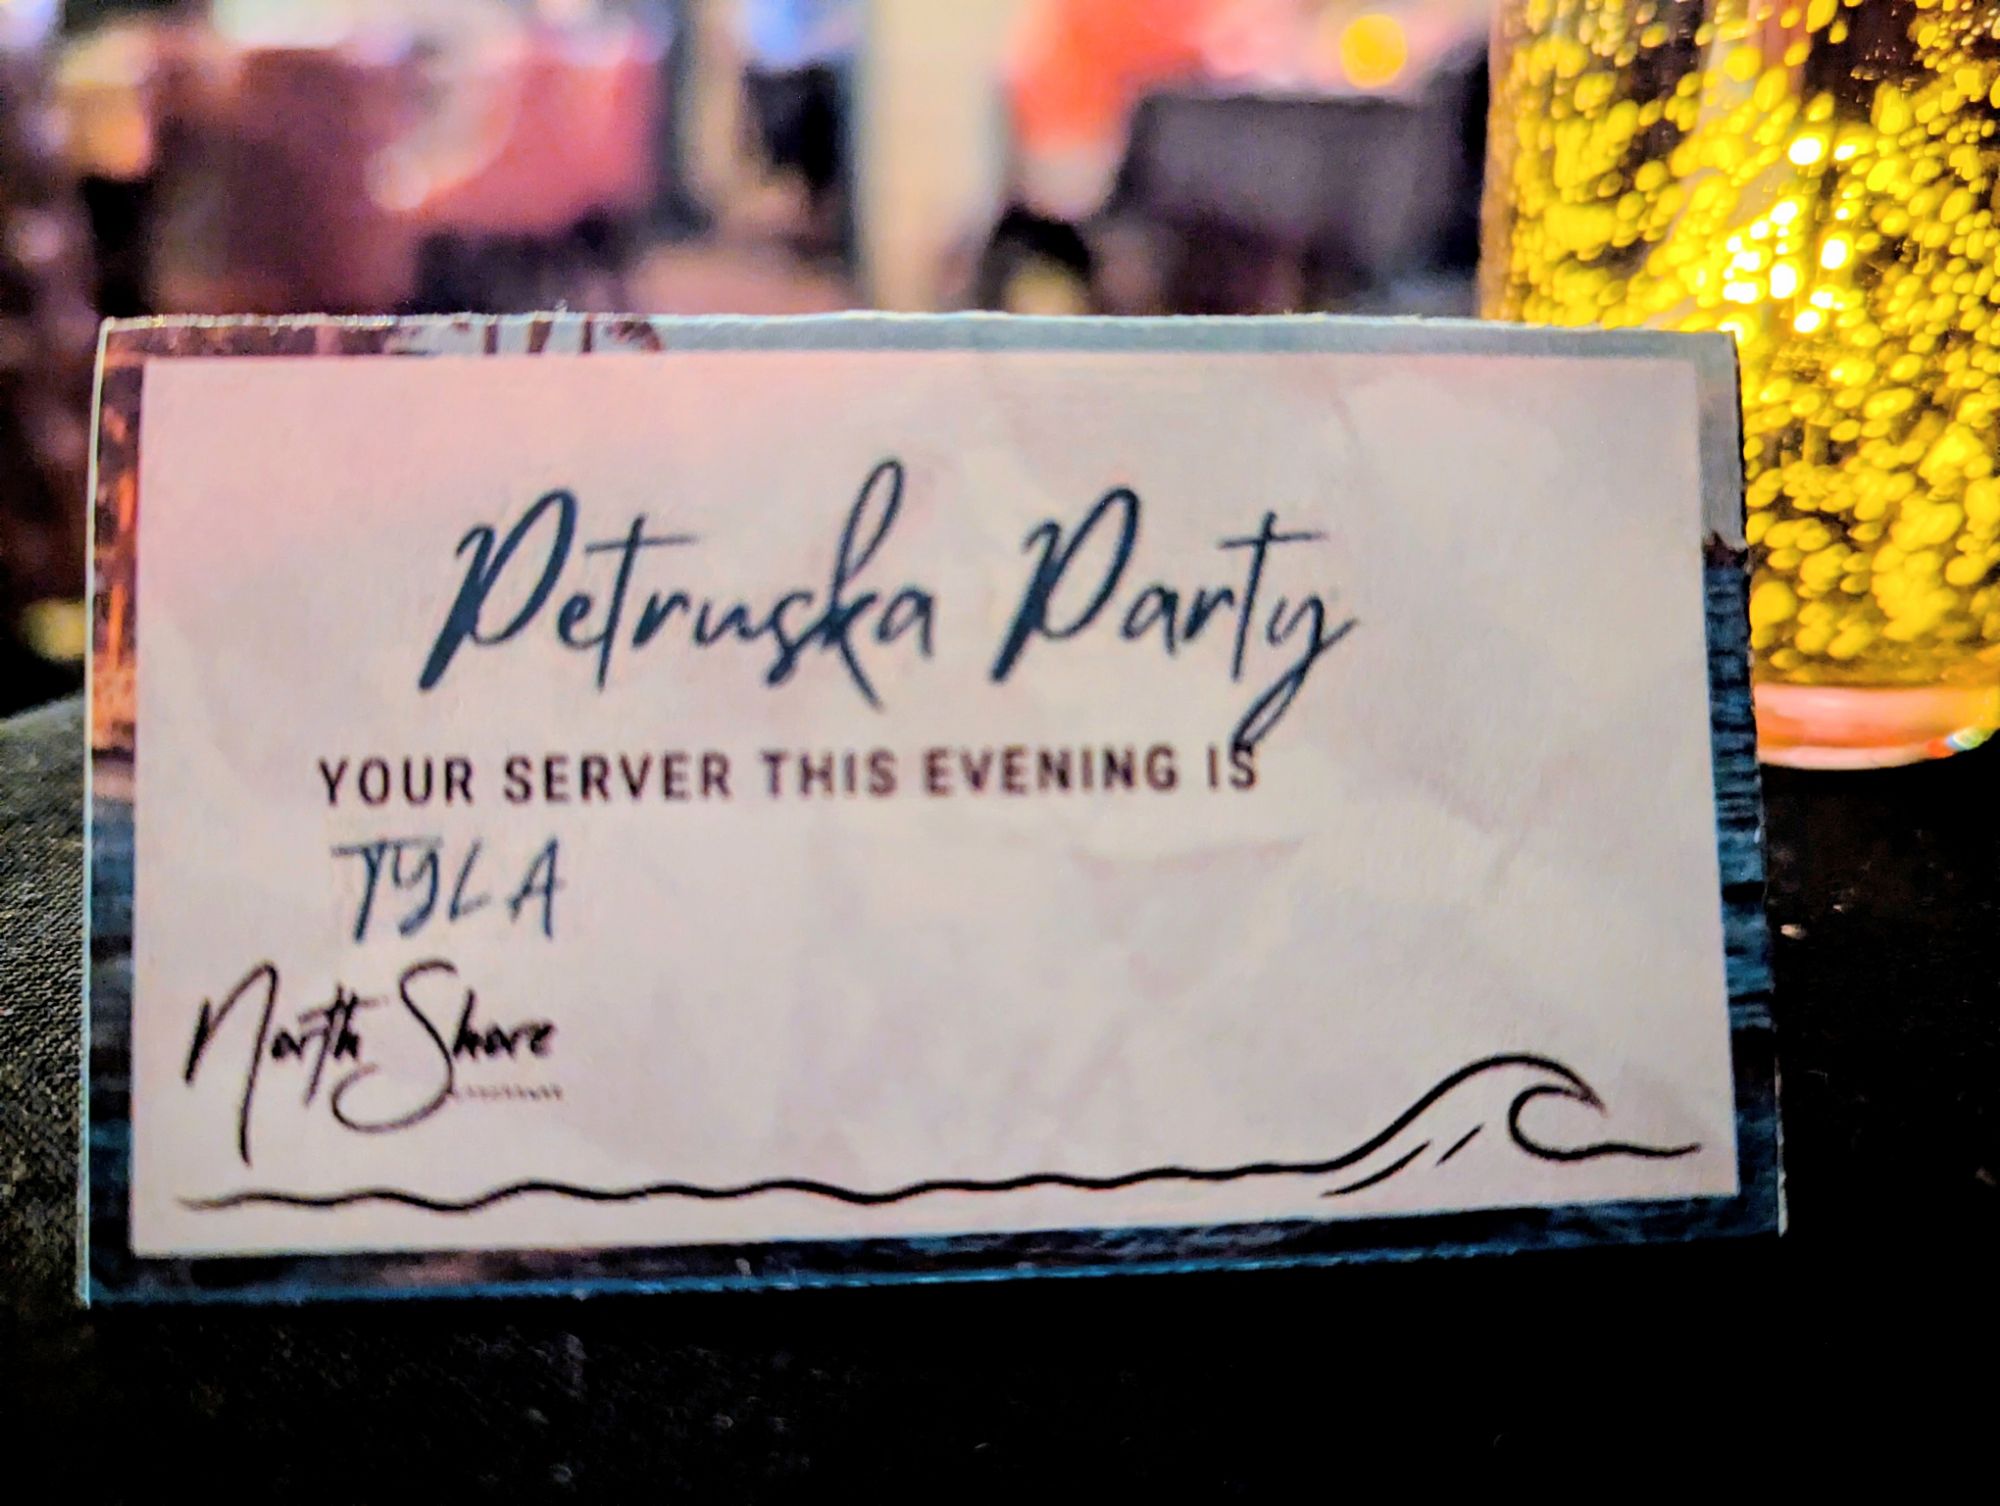 Petruska Party
YOUR SERVER THIS EVENING IS
TYLA
North Shore